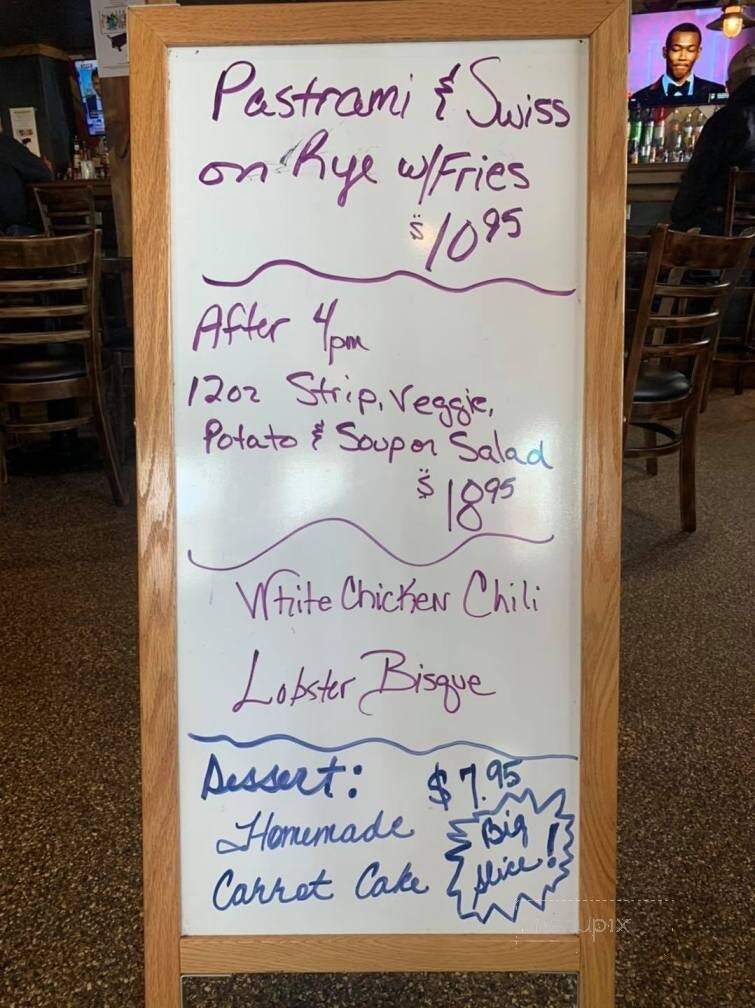 Pastrami & Swiss
on Rye w/Fries
$10.95
After 4pm
12oz Strip, Veggie,
Potato & Soup or Salad
$18.95
White Chicken Chili
Lobster Bisque
Dessert: $7.95
Homemade
Carrot Cake
Big
slice!